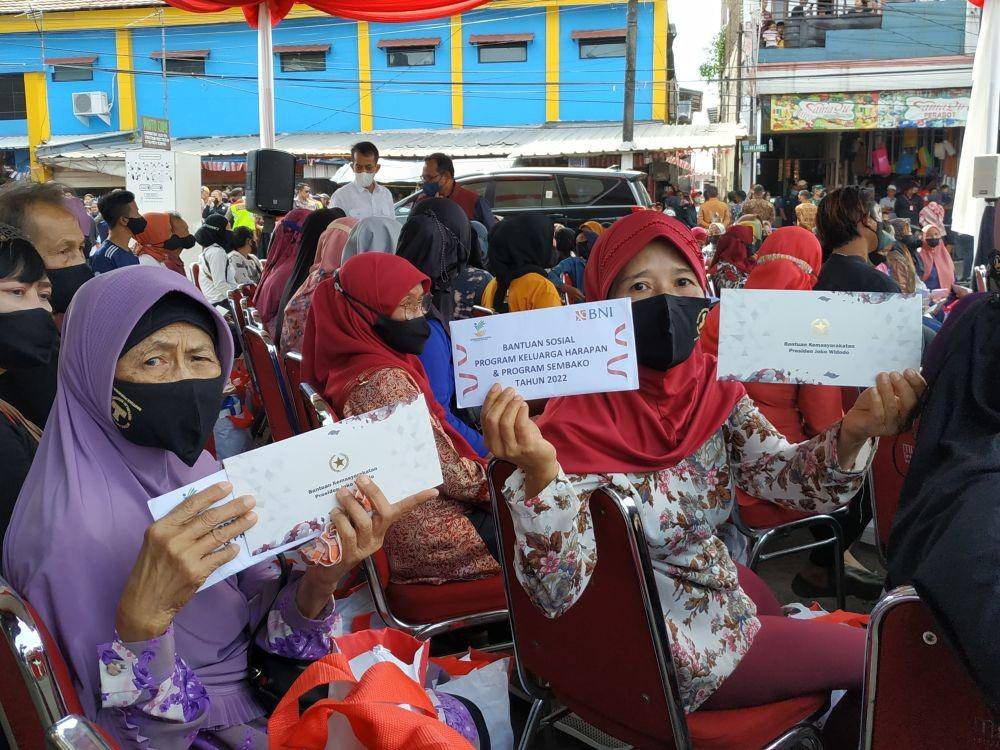 BNI
BANTUAN SOSIAL
PROGRAM KELUARGA HARAPAN
& PROGRAM SEMBAKO
TAHUN 2022
Bantuan Kemasyarakatan
Presiden Joko Widodo
Bantuan Kemasyarakatan
Presiden Joko Widodo
PERABOT